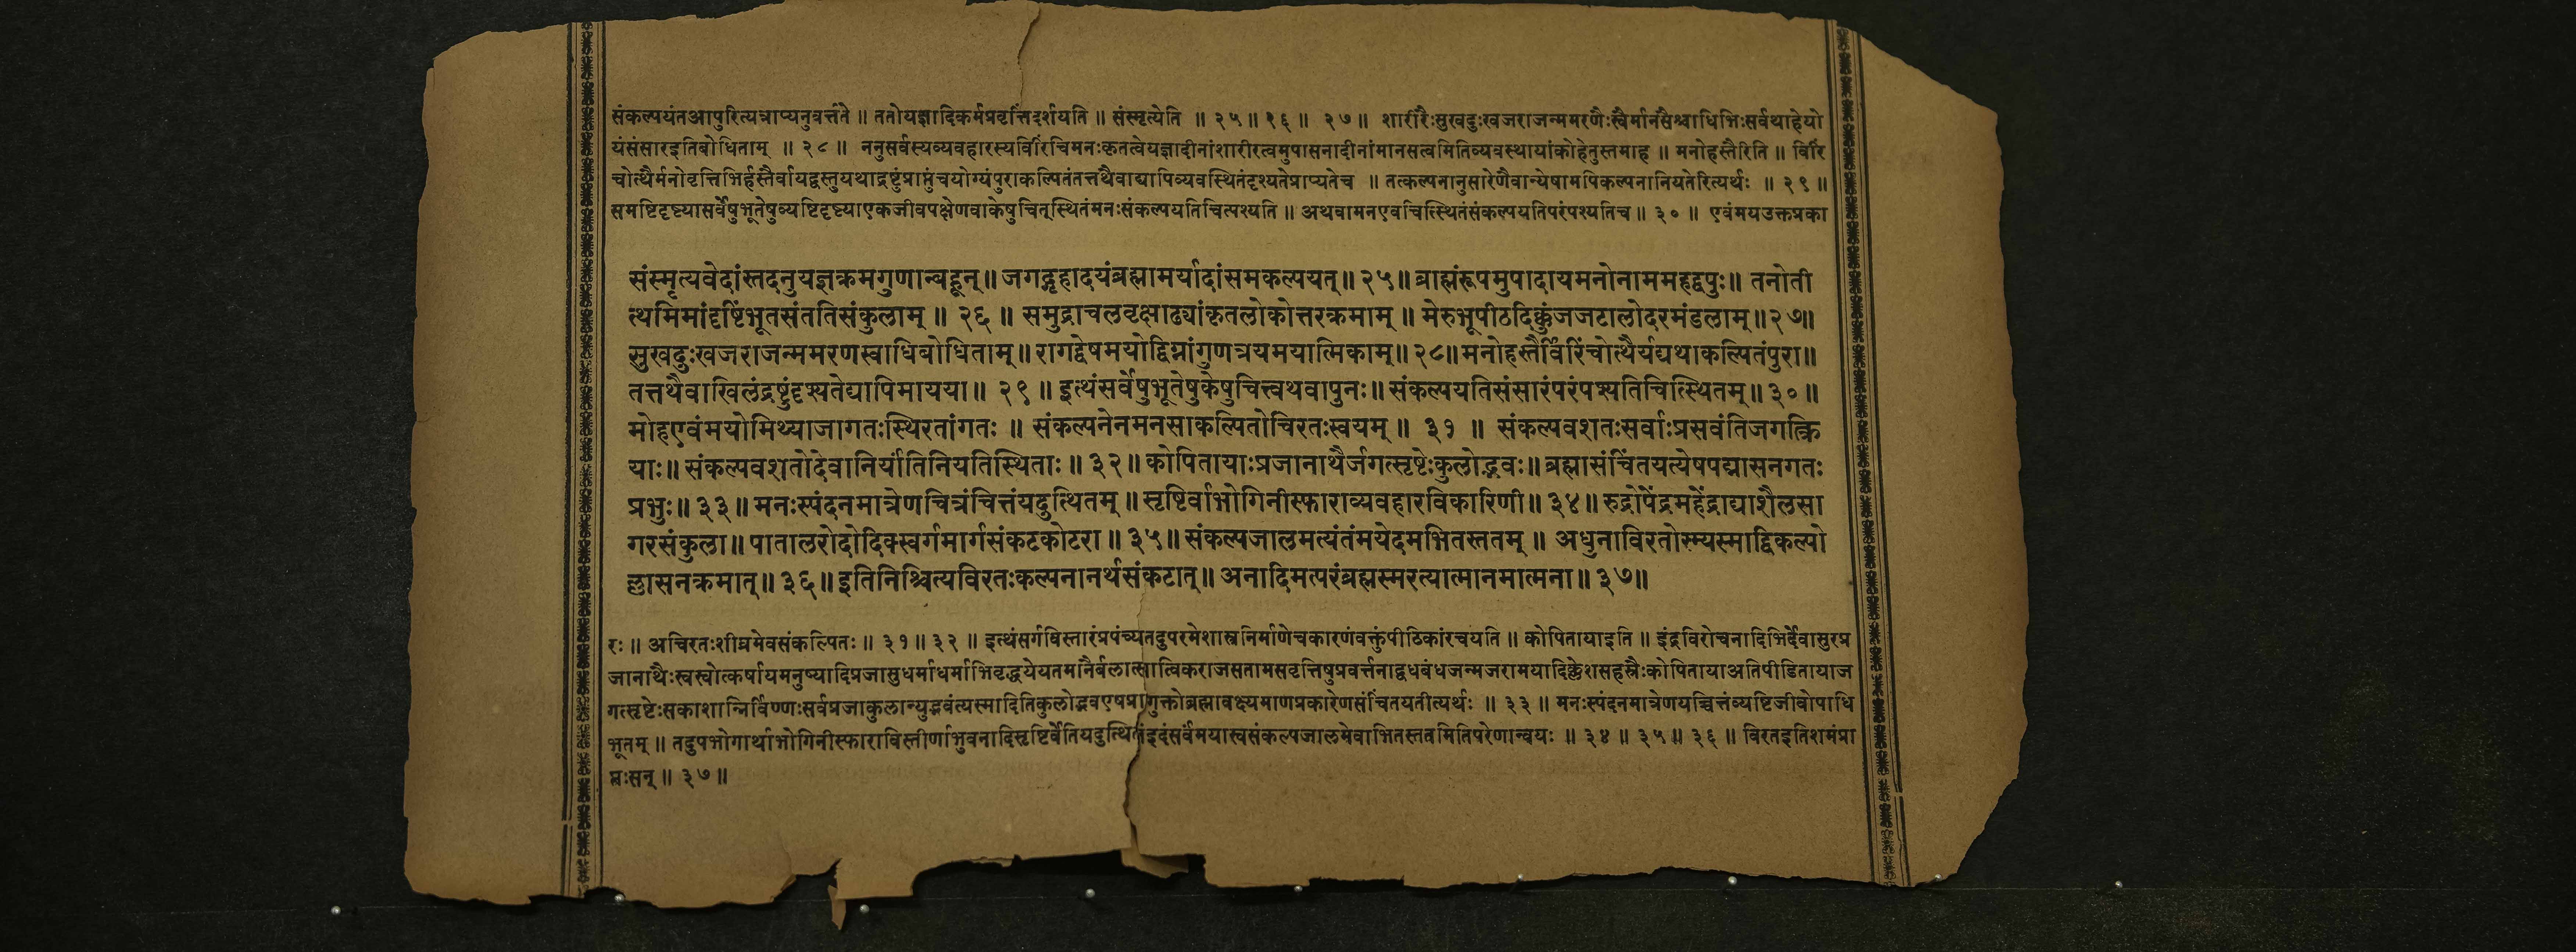 संकल्पयंतआपुरित्यत्राप्यनुवर्त्तते ॥ ततोयज्ञादिकर्मप्रवृत्तिंदर्शयति ॥ संस्मृत्येति ॥ २५ ॥ २६ ॥ २७ ॥ शारीरैःसुखदुःखजराजन्ममरणैःस्वैर्मानसैश्चाधिभिःसर्वथाहेयो
यंसंसारइतिबोधिताम् ॥ २८ ॥ ननुसर्वस्यव्यवहारस्यविरिंचिमनःकृतत्वेयज्ञादीनांशारीरत्वमुपासनादीनांमानसत्वमितिव्यवस्थायांकोहेतुस्तमाह ॥ मनोहस्तैरिति ॥ विरिं
चोत्थैर्मनोवृत्तिभिर्हस्तैर्वायद्वस्तुयथाद्रष्टुंप्राप्तुंचयोग्यंपुराकल्पितंतत्तथैवाद्यापिव्यवस्थितंदृश्यतेप्राप्यतेच ॥ तत्कल्पनानुसारेणैवान्येषामपिकल्पनानियतेरित्यर्थः ॥ २९ ॥
समष्टिदृष्ट्यासर्वेषुभूतेषुव्यष्टिदृष्ट्याएकजीवपक्षेणवाकेषुचित्स्थितंमनःसंकल्पयतिचित्पश्यति ॥ अथवामनएवचित्स्थितंसंकल्पयतिपरंपश्यतिच ॥ ३० ॥ एवंमयउक्तप्रका
संस्मृत्यवेदांस्तदनुयज्ञक्रमगुणान्बहून् ॥ जगद्गृहादयंब्रह्मामर्यादांसमकल्पयत् ॥ २५ ॥ ब्राह्मंरूपमुपादायमनोनाममहद्वपुः ॥ तनोती
त्थमिमांदृष्टिंभूतसंततिसंकुलाम् ॥ २६ ॥ समुद्राचलवृक्षाढ्यांकृतलोकोत्तरक्रमाम् ॥ मेरुभूपीठदिक्कुंजजटालोदरमंडलाम् ॥ २७ ॥
सुखदुःखजराजन्ममरणस्वाधिबोधिताम् ॥ रागद्वेषमयोद्विग्नांगुणत्रयमयात्मिकाम् ॥ २८ ॥ मनोहस्तैर्विरिंचोत्थैर्यद्यथाकल्पितंपुरा ॥
तत्तथैवाखिलंद्रष्टुंदृश्यतेद्यापिमायया ॥ २९ ॥ इत्थंसर्वेषुभूतेषुकेषुचित्त्वथवापुनः ॥ संकल्पयतिसंसारंपरंपश्यतिचित्स्थितम् ॥ ३० ॥
मोहएवंमयोमिथ्याजागतःस्थिरतांगतः ॥ संकल्पनेनमनसाकल्पितोचिरतःस्वयम् ॥ ३१ ॥ संकल्पवशतःसर्वाःप्रसवंतिजगत्क्रि
याः ॥ संकल्पवशतोदेवानिर्यांतिनियतिस्थिताः ॥ ३२ ॥ कोपितायाःप्रजानाथैर्जगत्सृष्टेःकुलोद्भवः ॥ ब्रह्मासंचिंतयत्येषपद्मासनगतः
प्रभुः ॥ ३३ ॥ मनःस्पंदनमात्रेणचित्रंचित्तंयदुत्थितम् ॥ सृष्टिर्वाभोगिनीस्फाराव्यवहारविकारिणी ॥ ३४ ॥ रुद्रोपेंद्रमहेंद्राद्याशैलसा
गरसंकुला ॥ पातालरोदोदिक्स्वर्गमार्गसंकटकोटरा ॥ ३५ ॥ संकल्पजालमत्यंतंमयेदमभितस्ततम् ॥ अधुनाविरतोस्म्यस्माद्विकल्पो
ल्लासनक्रमात् ॥ ३६ ॥ इतिनिश्चित्यविरतःकल्पनानर्थसंकटात् ॥ अनादिमत्परंब्रह्मस्मरत्यात्मानमात्मना ॥ ३७ ॥
रः ॥ अचिरतःशीघ्रमेवसंकल्पितः ॥ ३१ ॥ ३२ ॥ इत्थंसर्गविस्तारंप्रपंच्यतदुपरमेशास्त्रनिर्माणेचकारणंवक्तुंपीठिकांरचयति ॥ कोपितायाइति ॥ इंद्रविरोचनादिभिर्देवासुरप्र
जानाथैःस्वस्वोत्कर्षायमनुष्यादिप्रजासुधर्माधर्माभिवृद्धयेयतमानैर्बलात्सात्विकराजसतामसवृत्तिषुप्रवर्त्तनाद्वधबंधजन्मजरामयादिक्लेशसहस्रैःकोपितायाअतिपीडितायाज
गत्सृष्टेःसकाशान्निर्विण्णःसर्वप्रजाकुलान्युद्भवंत्यस्मादितिकुलोद्भवएषप्रागुक्तोब्रह्मावक्ष्यमाणप्रकारेणसंचिंतयतीत्यर्थः ॥ ३३ ॥ मनःस्पंदनमात्रेणयच्चित्तंव्यष्टिजीवोपाधि
भूतम् ॥ तदुपभोगार्थाभोगिनीस्फाराविस्तीर्णाभुवनादिसृष्टिर्वेतियदुत्थितंइदंसर्वंमयास्वसंकल्पजालमेवाभितस्ततमितिपरेणान्वयः ॥ ३४ ॥ ३५ ॥ ३६ ॥ विरतइतिशमंप्रा
प्तःसन् ॥ ३७ ॥